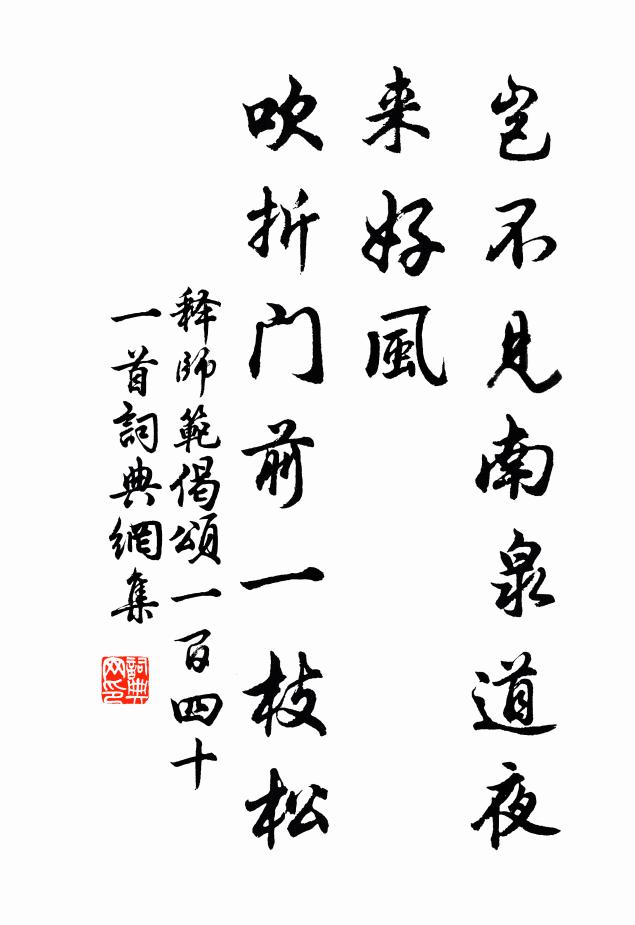 豈不見南泉道夜
来好風
吹折門前一枝松
释師範偈頌一百四十
一首詞典網集
詞典网印